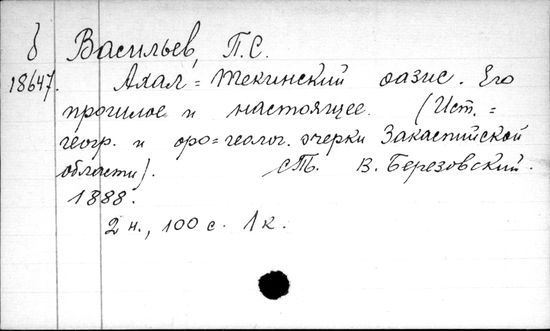 б Васильев, П.С.
18647. Ахал-Текинский оазис. Его
прошлое и настоящее. (Ист.=
геогр. и оро=геолог. очерки Закаспийской
области). СПб. В. Березовский.
1888.
2 н., 100 с. 1 к.